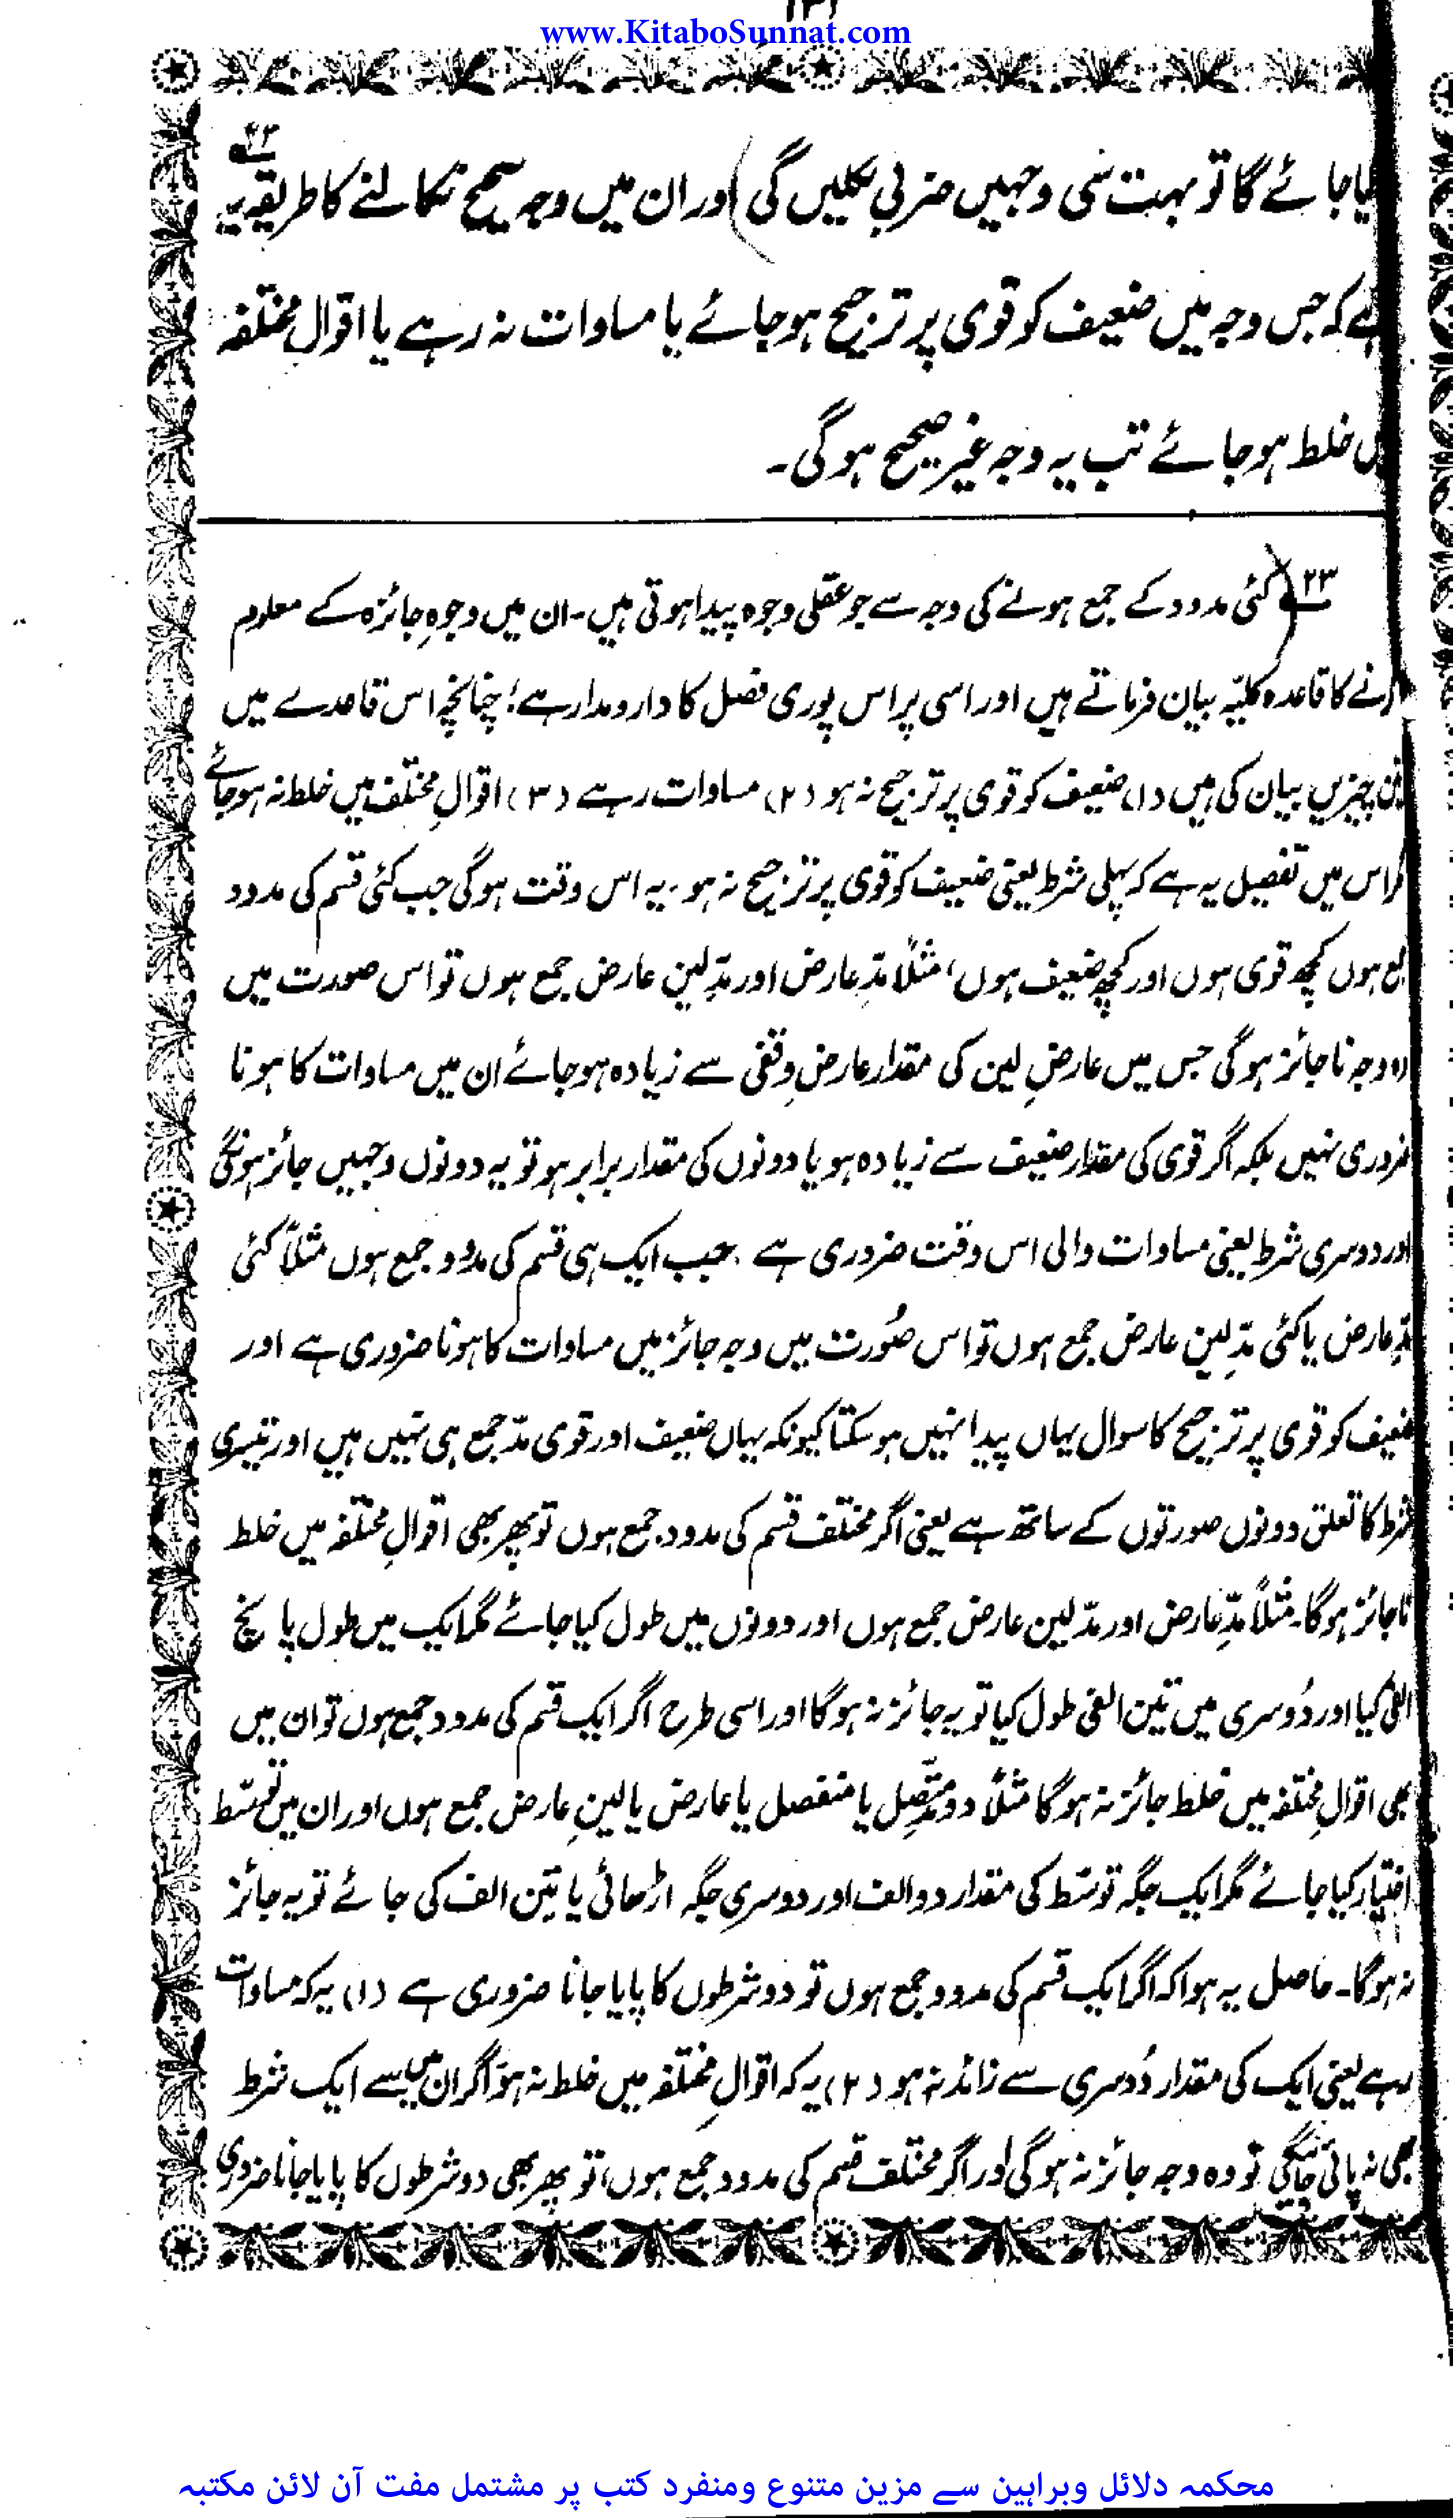 ۱۳۱
www.KitaboSunnat.com
کیا جائے گا تو بہت سی وجہیں ضربی نکلیں گی) اور ان میں وجہ صحیح نکالنے کا طریقہ یہ ۲۳
ہے کہ جس وجہ میں ضعیف کو قوی پر ترجیح ہو جائے یا مساوات نہ رہے یا اقوالِ مختلفہ
میں خلط ہو جائے تب یہ وجہ غیر صحیح ہوگی۔
۲۳ (کئی مدود کے جمع ہونے کی وجہ سے جو عقلی وجوہ پیدا ہوتی ہیں۔ ان میں وجوہِ جائزہ کے معلوم
کرنے کا قاعدہ کلیّہ بیان فرماتے ہیں اور اسی پر اس پوری فصل کا دارومدار ہے؛ چنانچہ اس قاعدے میں
تین چیزیں بیان کی ہیں (۱) ضعیف کو قوی پر ترجیح نہ ہو (۲) مساوات رہے (۳) اقوالِ مختلفہ میں خلط نہ ہو جائے
مگر اس میں تفصیل یہ ہے کہ پہلی شرط یعنی ضعیف کو قوی پر ترجیح نہ ہو، یہ اس وقت ہوگی جب کئی قسم کی مدود
جمع ہوں کچھ قوی ہوں اور کچھ ضعیف ہوں، مثلاً مدِّ عارض اور مدِّ لینِ عارض جمع ہوں تو اس صورت میں
وہ وجہ ناجائز ہوگی جس میں عارضِ لین کی مقدار عارضِ وقفی سے زیادہ ہو جائے ان میں مساوات کا ہونا
ضروری نہیں بلکہ اگر قوی کی مقدار ضعیف سے زیادہ ہو یا دونوں کی مقدار برابر ہو تو یہ دونوں وجہیں جائز ہونگی
اور دوسری شرط یعنی مساوات والی اس وقت ضروری ہے۔ جب ایک ہی قسم کی مدود جمع ہوں مثلاً کئی
مدِّ عارض یا کئی مدِّ لینِ عارض جمع ہوں تو اس صُورت میں وجہ جائز میں مساوات کا ہونا ضروری ہے اور
ضعیف کو قوی پر ترجیح کا سوال یہاں پیدا نہیں ہو سکتا کیونکہ یہاں ضعیف اور قوی مدّ جمع ہی نہیں ہیں اور تیسری
شرط کا تعلق دونوں صورتوں کے ساتھ ہے یعنی اگر مختلف قسم کی مدود جمع ہوں تو پھر بھی اقوالِ مختلفہ میں خلط
ناجائز ہوگا۔ مثلاً مدِّ عارض اور مدّ لین عارض جمع ہوں اور دونوں میں طول کیا جائے مگر ایک میں طول پانچ
الفی کیا اور دُوسری میں تین الفی طول کیا تو یہ جائز نہ ہوگا اور اسی طرح اگر ایک قسم کی مدود جمع ہوں تو ان میں
بھی اقوالِ مختلفہ میں خلط جائز نہ ہوگا مثلاً دو مدِّ متّصل یا منفصل یا عارض یا لینِ عارض جمع ہوں اور ان میں توسّط
اختیار کیا جائے مگر ایک جگہ توسّط کی مقدار دو الف اور دوسری جگہ اڑھائی یا تین الف کی جائے تو یہ جائز
نہ ہوگا۔ حاصل یہ ہوا کہ اگر ایک قسم کی مدود جمع ہوں تو دو شرطوں کا پایا جانا ضروری ہے (۱) یہ کہ مساوات
رہے یعنی ایک کی مقدار دُوسری سے زائد نہ ہو (۲) یہ کہ اقوالِ مختلفہ میں خلط نہ ہو، اگر ان میں سے ایک شرط
بھی نہ پائی جائیگی تو وہ وجہ جائز نہ ہوگی اور اگر مختلف قسم کی مدود جمع ہوں، تو پھر بھی دو شرطوں کا پایا جانا ضروری
محکمہ دلائل وبراہین سے مزین متنوع ومنفرد کتب پر مشتمل مفت آن لائن مکتبہ